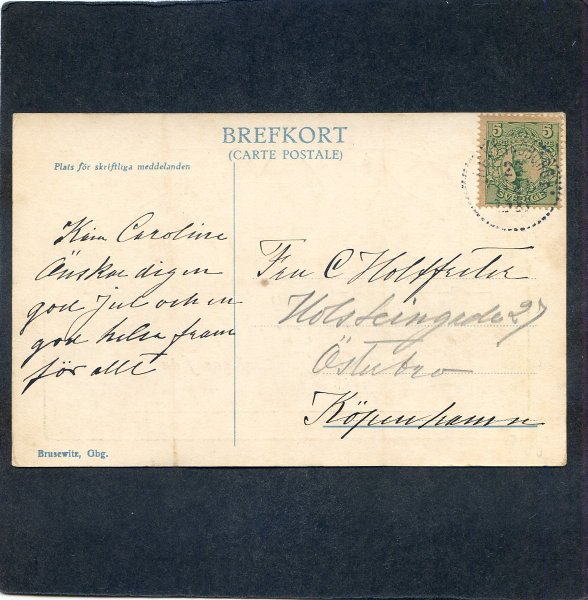 BREFKORT
(CARTE POSTALE)
Plats för skriftliga meddelanden
5 5
SVERIGE
Kära Caroline
Önskar dig en
god jul och en
god helsa fram
för allt
Fru C
Holsteinsgade 27
Östubro
Köpenhamn
Brusewitz, Gbg.